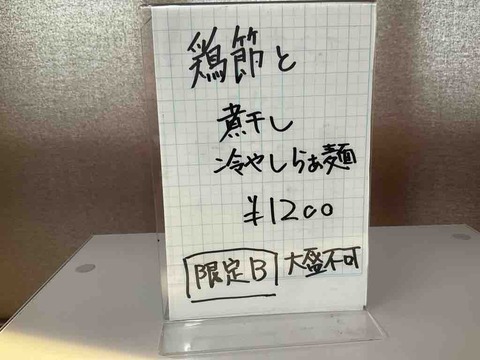 鶏節と
煮干し
冷やしらぁ麺
¥1200
限定B 大盛不可